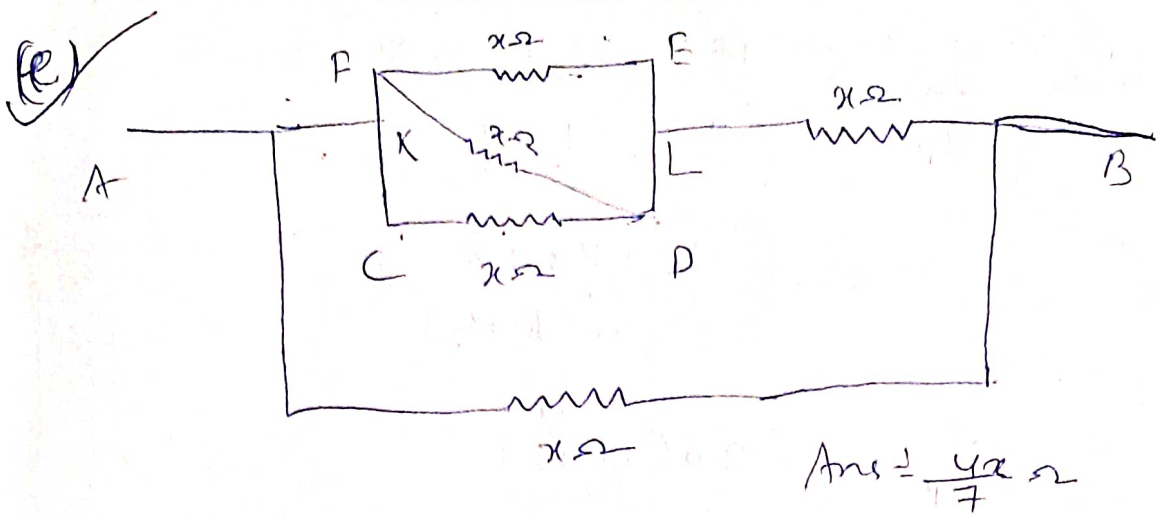 (e)
xΩ
F
E
xΩ
K
xΩ
L
A
B
C
xΩ
D
xΩ
Ans = 4x/7 Ω